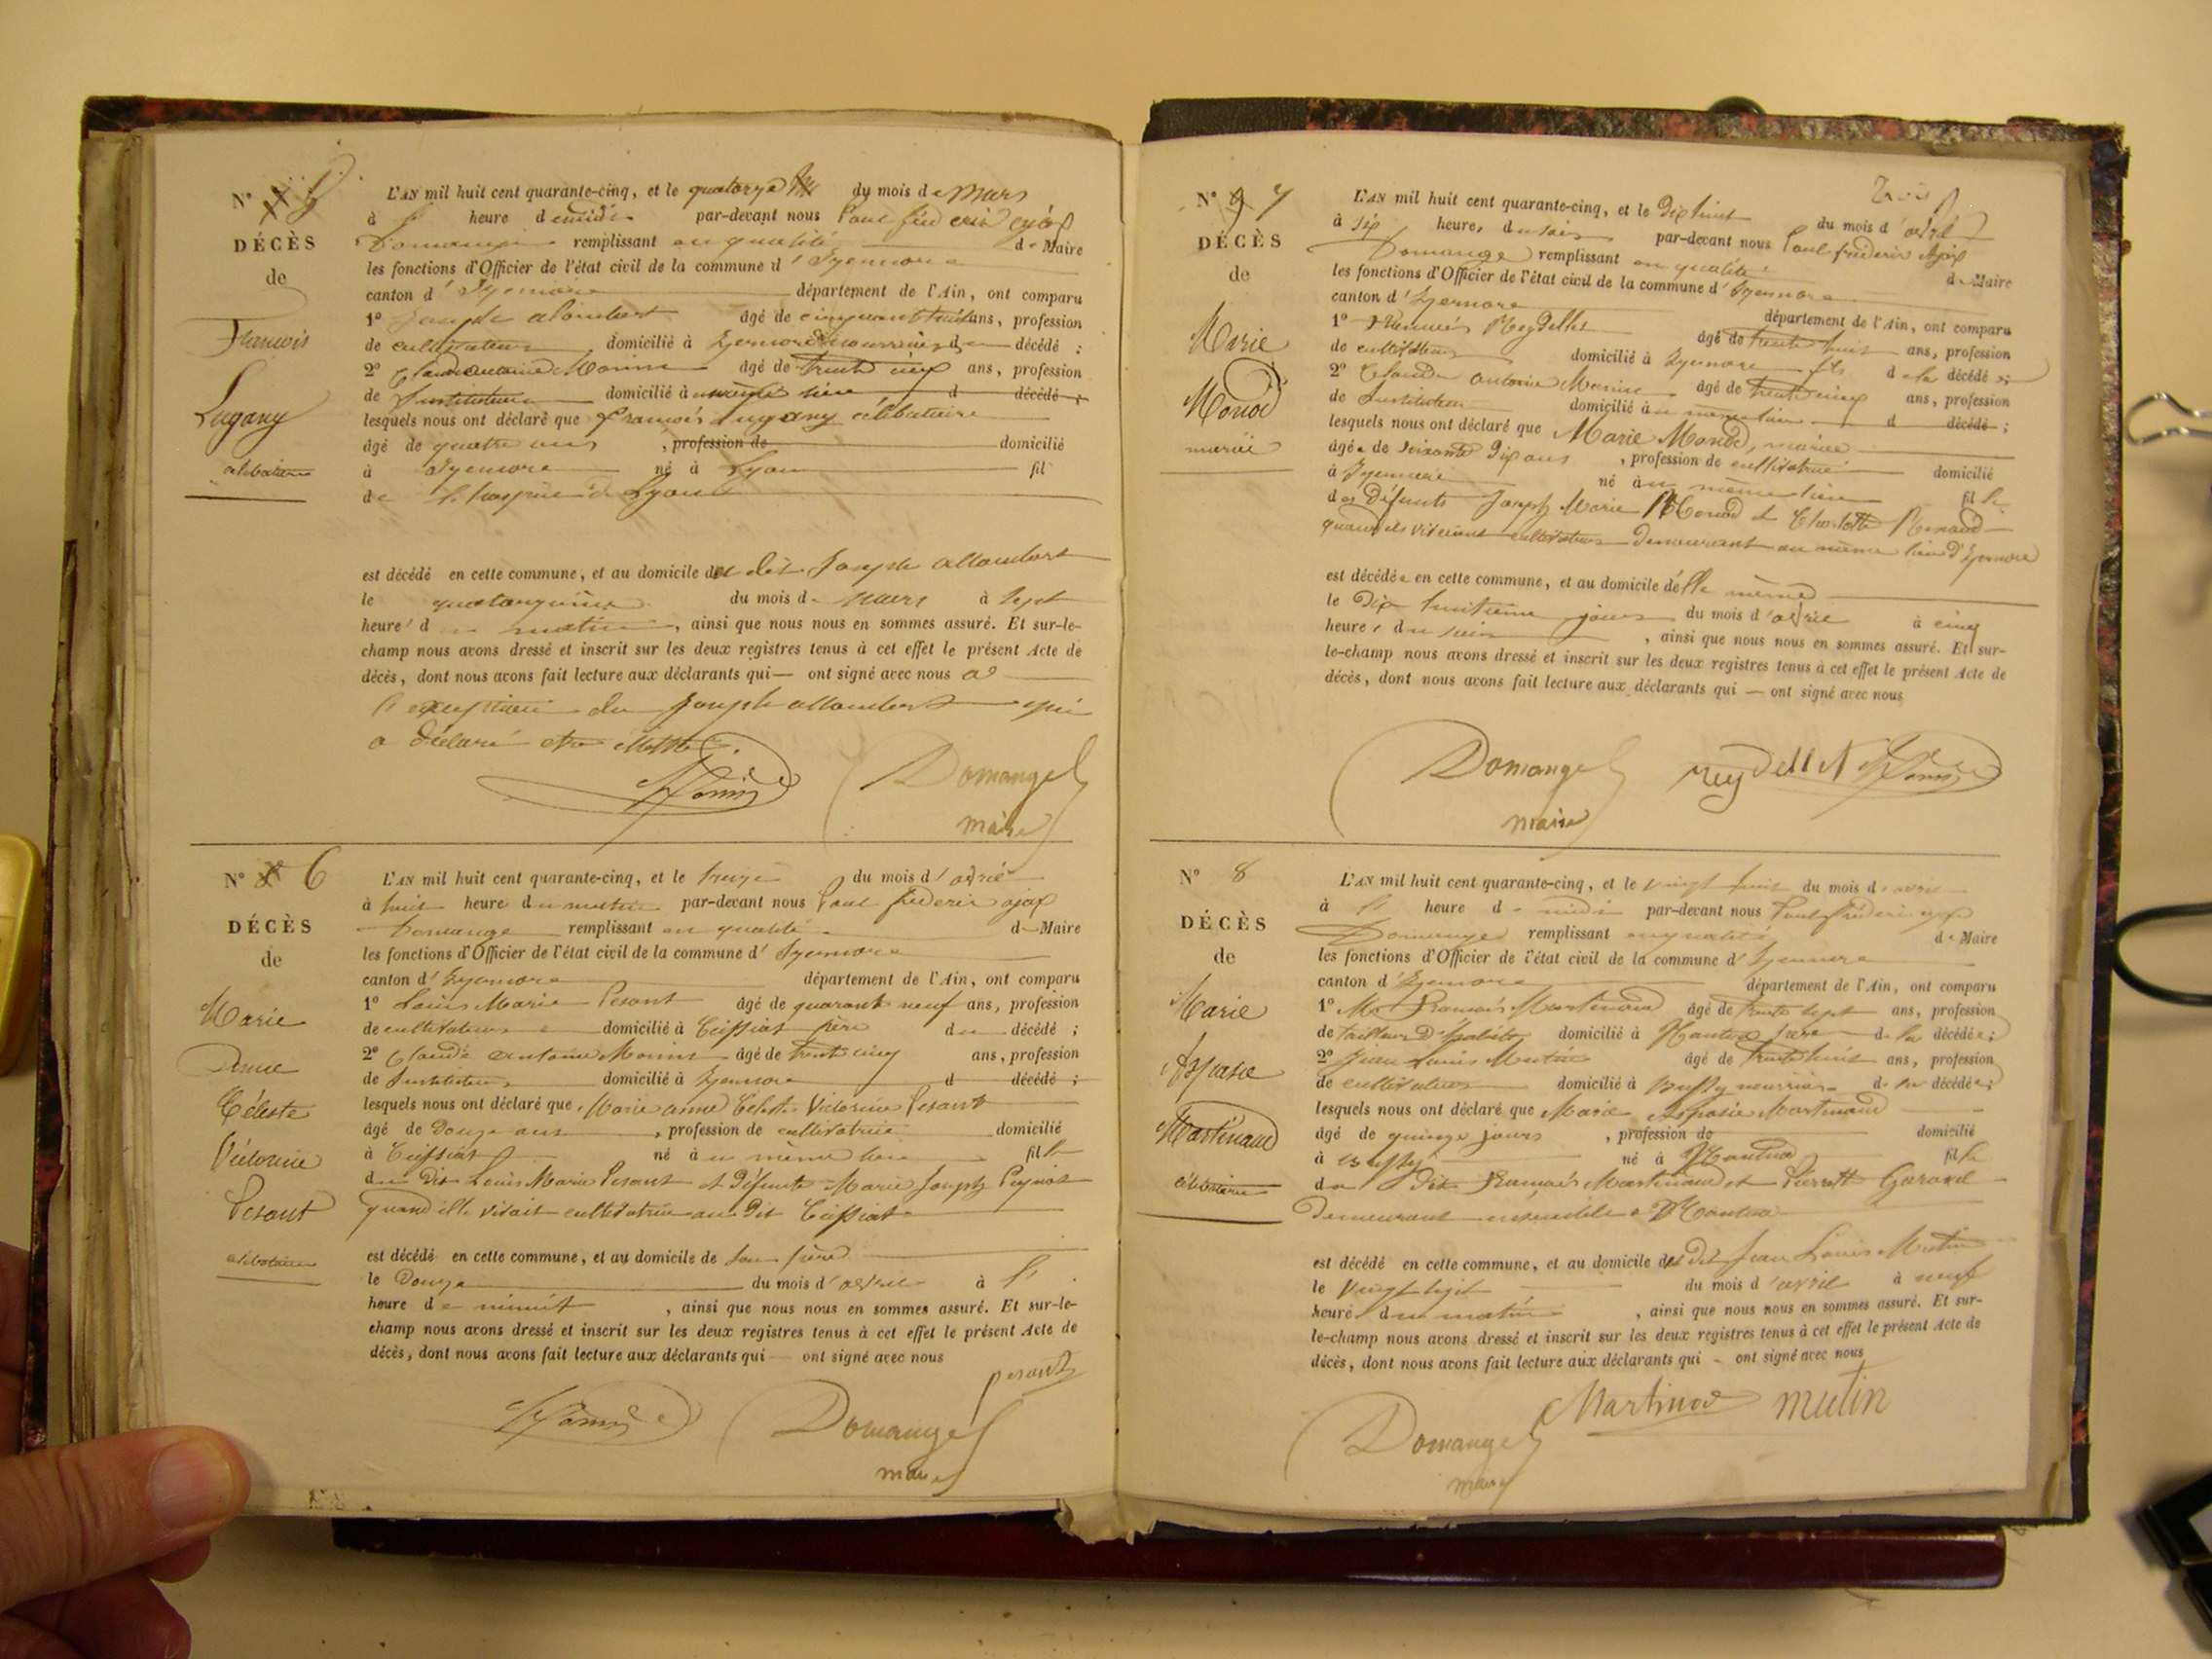 N° 5
DÉCÈS
de
François
Lugany
célibataire
L'AN mil huit cent quarante-cinq, et le quatorze du mois de Mars
à heure de midi par-devant nous Paul
Domange remplissant en qualité de Maire
les fonctions d'Officier de l'état civil de la commune d'Izernore
canton d'Izernore département de l'Ain, ont comparu
1° Joseph alombert âgé de cinquante ans, profession
de cultivateur domicilié à Izernore nourricier d décédé ;
2° Claude antoine Monin âgé de trente cinq ans, profession
de Instituteur domicilié à même lieu d décédé ;
lesquels nous ont déclaré que François Lugany célibataire
âgé de quatre ans , profession de domicilié
à Izernore né à Lyon fil
de l'hospice de Lyon
est décédé en cette commune, et au domicile du dit Joseph allombert
le quatorzième du mois de Mars à sept
heure du matin , ainsi que nous nous en sommes assuré. Et sur-le-
champ nous avons dressé et inscrit sur les deux registres tenus à cet effet le présent Acte de
décès, dont nous avons fait lecture aux déclarants qui ont signé avec nous a
l'exception du Joseph allombert qui
a déclaré
Monin Domange
maire
N° 6
DÉCÈS
de
Marie
Anne
Céleste
Victorine
Pesant
célibataire
L'AN mil huit cent quarante-cinq, et le treize du mois d'avril
à huit heure du matin par-devant nous Paul fréderic ajax
Domange remplissant en qualité de Maire
les fonctions d'Officier de l'état civil de la commune d'Izernore
canton d'Izernore département de l'Ain, ont comparu
1° Louis Marie Pesant âgé de quarante neuf ans, profession
de cultivateur domicilié à Ceissiat père du décédé ;
2° Claude antoine Monin âgé de trente cinq ans, profession
de Instituteur domicilié à Izernore d décédé ;
lesquels nous ont déclaré que Marie anne Céleste Victorine Pesant
âgé de Douze ans , profession de cultivatrice domicilié
à Ceissiat né au même lieu fille
du dit Louis Marie Pesant et défunte Marie Joseph
quand elle vivait cultivatrice au dit Ceissiat
est décédé en cette commune, et au domicile de son père
le Douze du mois d'avril à
heure de minuit , ainsi que nous nous en sommes assuré. Et sur-le-
champ nous avons dressé et inscrit sur les deux registres tenus à cet effet le présent Acte de
décès, dont nous avons fait lecture aux déclarants qui ont signé avec nous
pesant
Monin Domange
maire
N° 7
DÉCÈS
de
Marie
Monod
mariée
L'AN mil huit cent quarante-cinq, et le Dix huit du mois d'avril
à six heures du soir par-devant nous Paul fréderic Ajax
Domange remplissant en qualité de Maire
les fonctions d'Officier de l'état civil de la commune d'Izernore
canton d'Izernore département de l'Ain, ont comparu
1° Reydellet âgé de trente huit ans, profession
de cultivateur domicilié à Izernore fils de la décédée ;
2° Claude antoine Monin âgé de trente cinq ans, profession
de Instituteur domicilié au même lieu d décédé ;
lesquels nous ont déclaré que Marie Monod, mariée
âgée de soixante Dix ans , profession de cultivatrice domicilié
à Izernore né au même lieu fille
des défunts Joseph Marie Monod et Charlotte Renaud
quand ils vivaient cultivateurs demeurant au même lieu d'Izernore
est décédée en cette commune, et au domicile d'elle même
le Dix huitième jour du mois d'avril à cinq
heures du soir , ainsi que nous nous en sommes assuré. Et sur-
le-champ nous avons dressé et inscrit sur les deux registres tenus à cet effet le présent Acte de
décès, dont nous avons fait lecture aux déclarants qui ont signé avec nous
Domange reydellet Monin
maire
N° 8
DÉCÈS
de
Marie
Aspasie
Martinaud
célibataire
L'AN mil huit cent quarante-cinq, et le vingt huit du mois d'avril
à heure de midi par-devant nous Paul fréderic ajax
Domange remplissant en qualité de Maire
les fonctions d'Officier de l'état civil de la commune d'Izernore
canton d'Izernore département de l'Ain, ont comparu
1° François Martinaud âgé de trente sept ans, profession
de tailleur d'habits domicilié à Nantua père de la décédée ;
2° Jean Louis Mutin âgé de trente huit ans, profession
de cultivateur domicilié à Bussy nourricier de la décédée ;
lesquels nous ont déclaré que Marie Aspasie Martinaud
âgé de quinze jours , profession de domicilié
à Bussy né à Nantua fille
du dit François Martinaud et Pierrette
demeurant ensemble à Nantua
est décédé en cette commune, et au domicile du dit Jean Louis Mutin
le vingt sept du mois d'avril à neuf
heure du matin , ainsi que nous nous en sommes assuré. Et sur-
le-champ nous avons dressé et inscrit sur les deux registres tenus à cet effet le présent Acte de
décès, dont nous avons fait lecture aux déclarants qui ont signé avec nous
Martinod mutin
Domange
maire